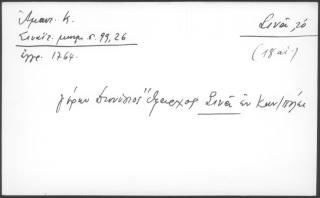 Ἄμαντ. Κ. Σινᾶ, τό
Σιναϊτ. μνημ. σ. 99, 26
ἔγγρ. 1764. (18 αἰ.)
γέρων Διονύσιος Ἔξαρχος Σινᾶ ἐν Κων/πόλει